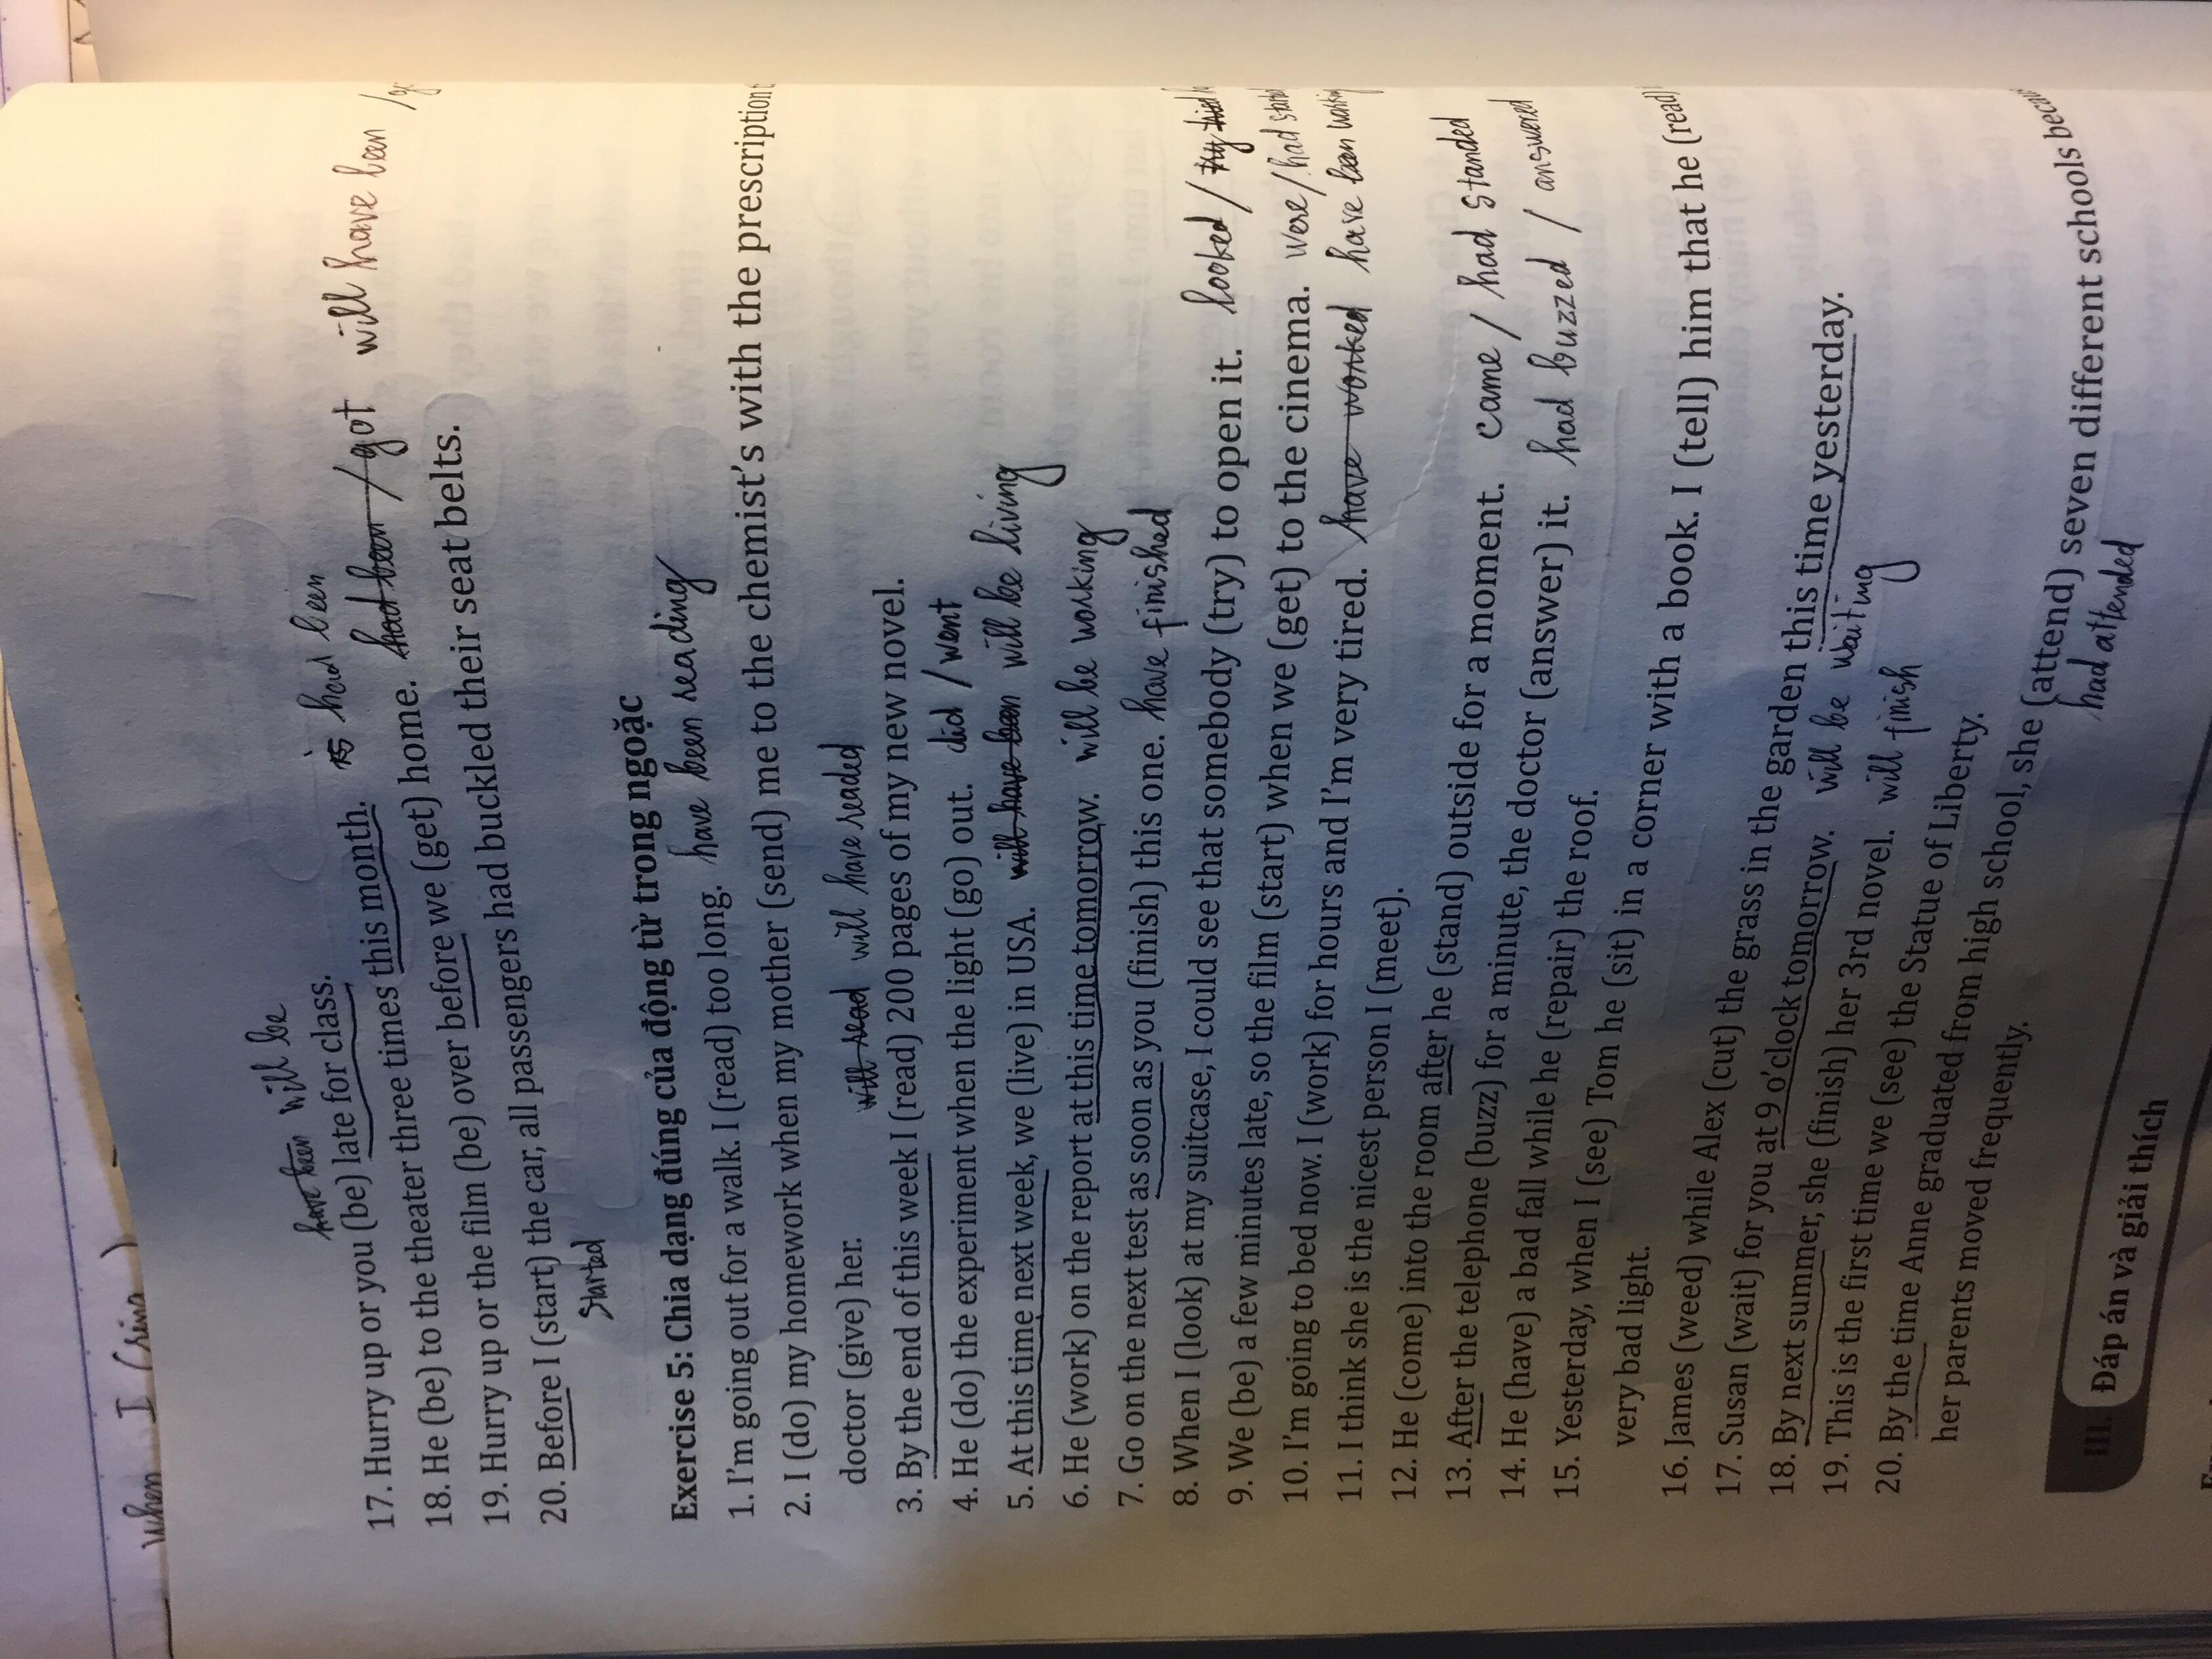 when I
have been will be
17. Hurry up or you (be) late for class.
had been
18. He (be) to the theater three times this month.
19. Hurry up or the film (be) over before we (get) home. had been / got will have been /
20. Before I (start) the car, all passengers had buckled their seat belts.
started
Exercise 5: Chia dạng đúng của động từ trong ngoặc
have been reading
1. I'm going out for a walk. I (read) too long.
2. I (do) my homework when my mother (send) me to the chemist's with the prescription
doctor (give) her.
will read will have readed
3. By the end of this week I (read) 200 pages of my new novel.
4. He (do) the experiment when the light (go) out. did / went
5. At this time next week, we (live) in USA. will have been will be living
6. He (work) on the report at this time tomorrow. will be working
7. Go on the next test as soon as you (finish) this one. have finished
8. When I (look) at my suitcase, I could see that somebody (try) to open it. looked /
9. We (be) a few minutes late, so the film (start) when we (get) to the cinema. were / had
10. I'm going to bed now. I (work) for hours and I'm very tired. have worked have been working
11. I think she is the nicest person I (meet).
12. He (come) into the room after he (stand) outside for a moment. came / had standed
13. After the telephone (buzz) for a minute, the doctor (answer) it. had buzzed / answered
14. He (have) a bad fall while he (repair) the roof.
15. Yesterday, when I (see) Tom he (sit) in a corner with a book. I (tell) him that he (read)
very bad light.
16. James (weed) while Alex (cut) the grass in the garden this time yesterday.
17. Susan (wait) for you at 9 o'clock tomorrow. will be waiting
18. By next summer, she (finish) her 3rd novel. will finish
19. This is the first time we (see) the Statue of Liberty.
20. By the time Anne graduated from high school, she (attend) seven different schools
had attended
her parents moved frequently.
III. Đáp án và giải thích